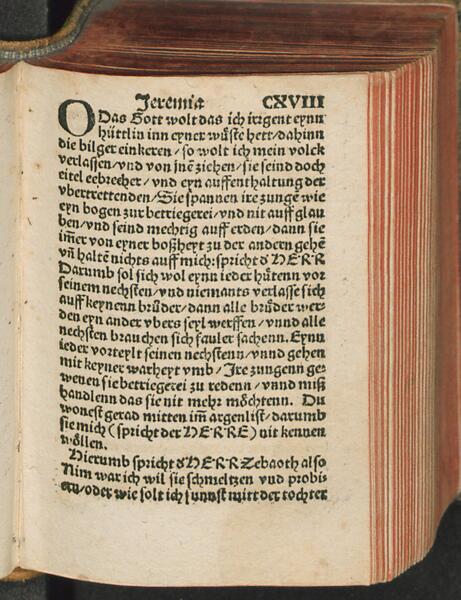 Jeremia CXVIII
O Das Gott wolt das ich irgent eynn
hüttlin inn eyner wůste hett/dahinn
die bilger einkeren/so wolt ich mein volck
verlassen/vnd von jnē ziehen/sie seind doch
eitel eebrecher/vnd eyn auffenthaltung der
vbertrettenden/Sie spannen ire zungē wie
eyn bogen zur betriegerei/vnd nit auff glau
ben/vnd seind mechtig auff erden/dann sie
im̄er von eyner boßheyt zu der andern gehē
vn̄ haltē nichts auff mich: spricht ď HERR
Darumb sol sich wol eynn ieder hůtenn vor
seinem nechsten/vnd niemants verlasse sich
auff keynenn brůder/dann alle brůder wer-
den eyn ander vbers seyl werffen/vnnd alle
nechsten brauchen sich fauler sachenn. Eynn
ieder vorteylt seinen nechstenn/vnnd gehen
mit keyner warheyt vmb/Ire zungenn ge-
wenen sie betriegerei zu redenn/vnnd miß
handlenn das sie nit mehr mőchtenn. Du
wonest gerad mitten im̄ argenlist/darumb
sie mich (spricht der HERRE) nit kennen
wőllen.
Hierumb spricht ď HERR Zebaoth also
Nim war ich wil sie schmeltzen vnd probi-
ern/oder wie solt ich sunnst mitt der tochter